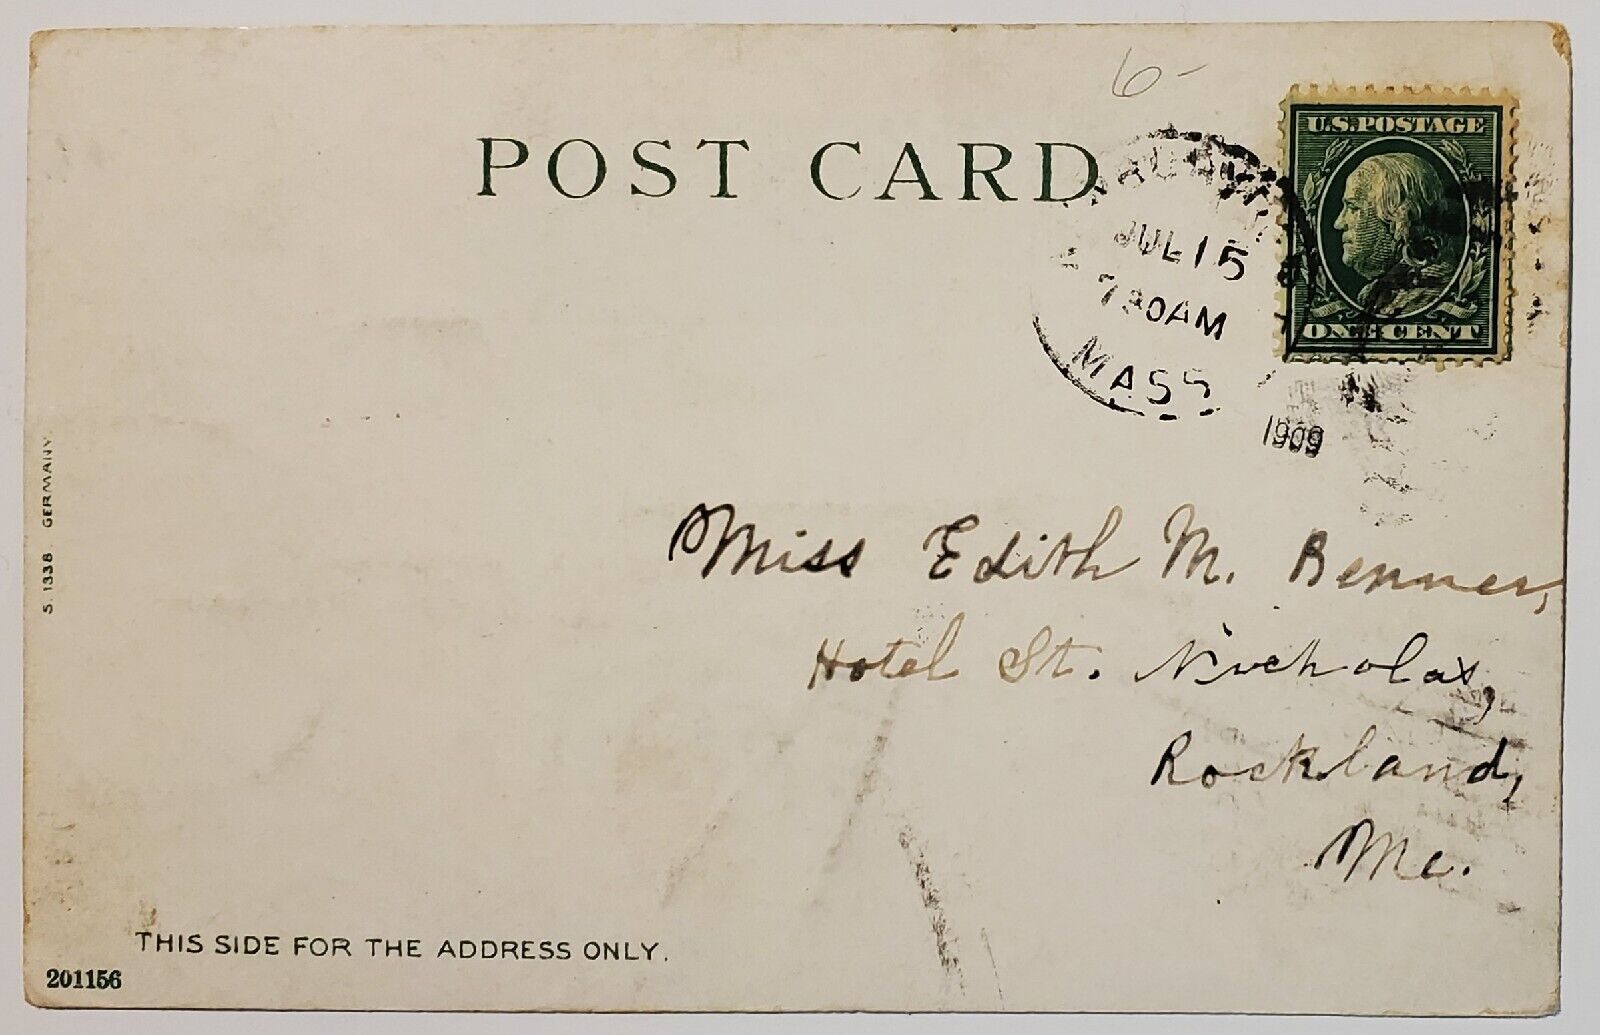 6-
POST CARD
U.S. POSTAGE
JUL 15
7 30 AM
MASS
1909
ONE CENT
S. 1338 GERMANY.
Miss Edith M. Benner,
Hotel St. Nicholas,
Rockland,
Me.
THIS SIDE FOR THE ADDRESS ONLY.
201156